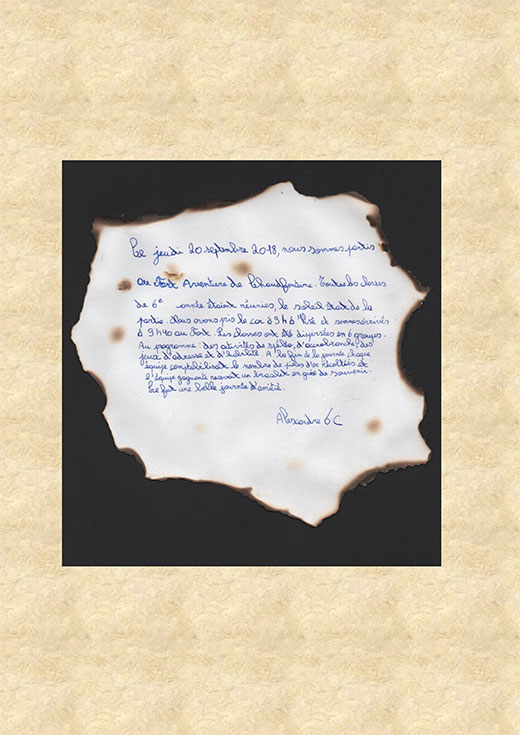 Le jeudi 20 septembre 2018, nous sommes partis
au Fort Aventure de Chaudfontaine. Toutes les classes
de 6e année étaient réunies, le soleil était de la
partie. Nous avons pris le car à 9h à et sommes arrivés
à 9h40 au Fort. Les classes ont été dispersées en 6 groupes.
Au programme : des activités de spéléo, d'accrobranche, des
jeux d'adresse et d'habilité. A la fin de la journée, chaque
équipe comptabilisait le nombre de pièces d'or récoltées et
l'équipe gagnante recevait un bracelet en guise de souvenir.
Ce fut une belle journée d'amitié.
Alexandre 6C